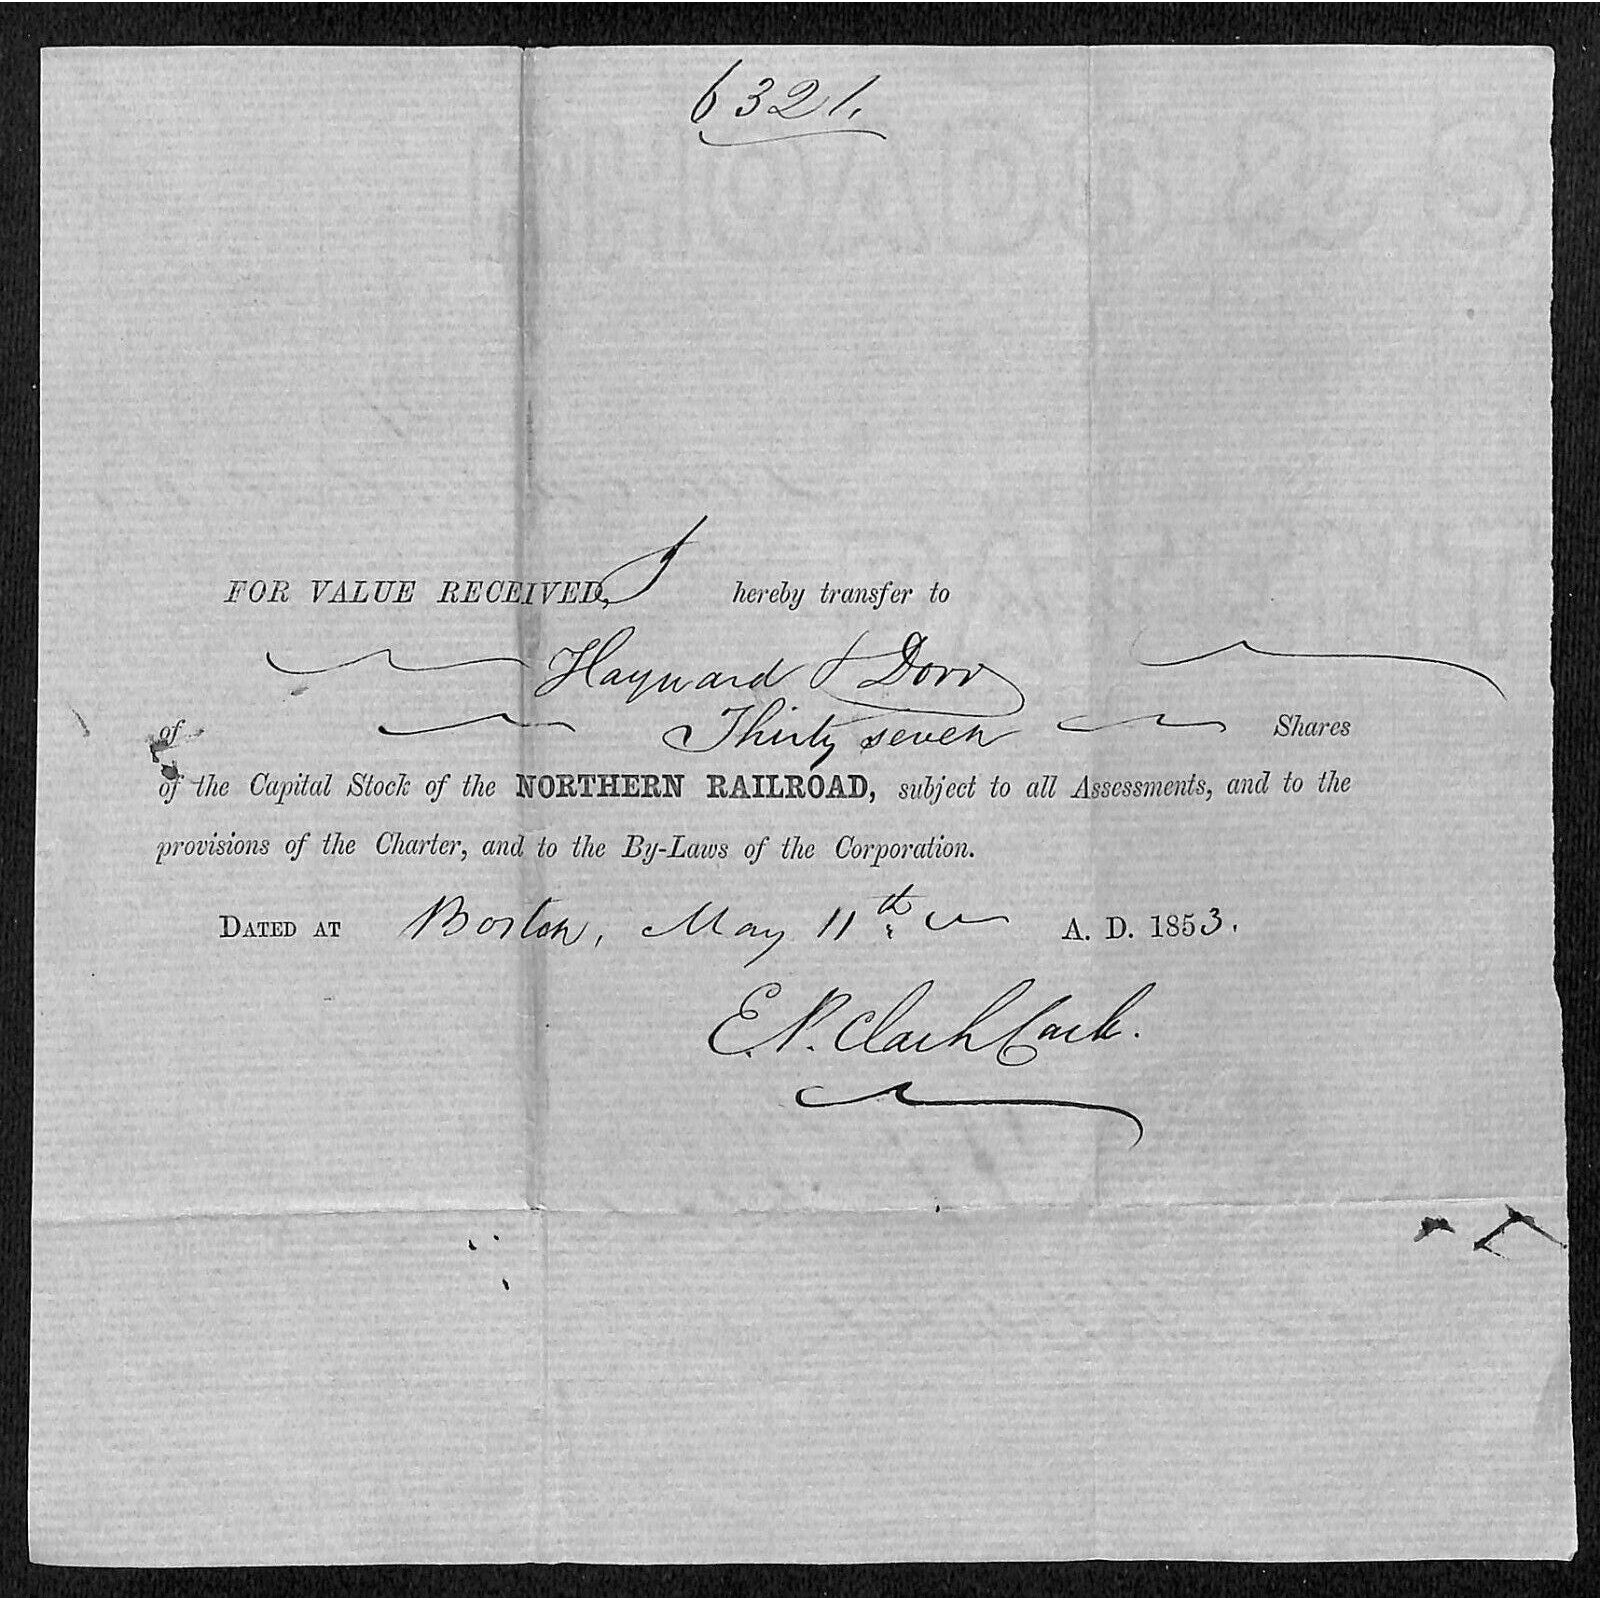 6321.
FOR VALUE RECEIVED, I hereby transfer to
Hayward & Dorr
of Thirty seven Shares
of the Capital Stock of the NORTHERN RAILROAD, subject to all Assessments, and to the
provisions of the Charter, and to the By-Laws of the Corporation.
DATED AT Boston, May 11th A. D. 1853.
E. P. Clark Cash.